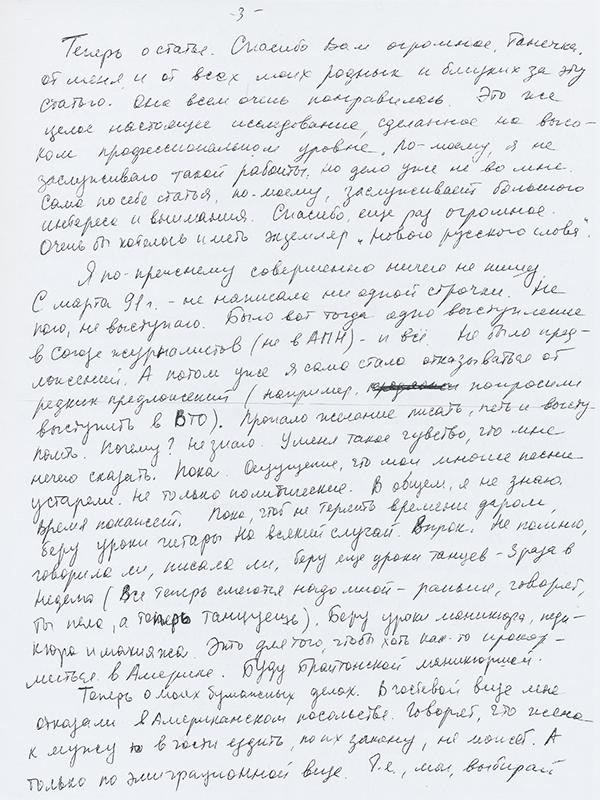 -3-
Теперь о статье. Спасибо Вам огромное, Танечка,
от меня и от всех моих родных и близких за эту
статью. Она всем очень понравилась. Это же
целое настоящее исследование, сделанное на высо-
ком профессиональном уровне. По-моему, я не
заслуживаю такой работы, но дело уже не во мне.
Сама по себе статья, по-моему, заслуживает большого
интереса и внимания. Спасибо, еще раз огромное.
Очень бы хотелось иметь экземпляр „Нового русского слова".
Я по-прежнему совершенно ничего не пишу.
С марта 91г. - не написала ни одной строчки. Не
пою, не выступаю. Было вот тогда одно выступление
в Союзе журналистов (не в АПН) - и всё. Не было пред-
ложений. А потом уже я сама стала отказываться от
редких предложений (например, попросили
выступить в ВТО). Пропало желание писать, петь и высту-
пать. Почему? Не знаю. У меня такое чувство, что мне
нечего сказать. Пока. Ощущение, что мои многие песни
устарели. Не только политические. В общем, я не знаю.
Время покажет. Пока, чтоб не терять времени даром,
беру уроки гитары На всякий случай. Впрок. Не помню,
говорила ли, писала ли, беру еще уроки танцев - 3 раза в
неделю (Все теперь смеются надо мной - раньше, говорят,
ты пела, а теперь танцуешь). Беру уроки маникюра, педи-
кюра и макияжа. Это для того, чтобы хоть как-то прокор-
миться в Америке. Буду Брайтонской маникюршей.
Теперь о моих бумажных делах. В гостевой визе мне
отказали в Американском посольстве. Говорят, что жена
к мужу в гости ездить, по их закону, не может. А
только по эмиграционной визе. Т.е., мол, выбирай